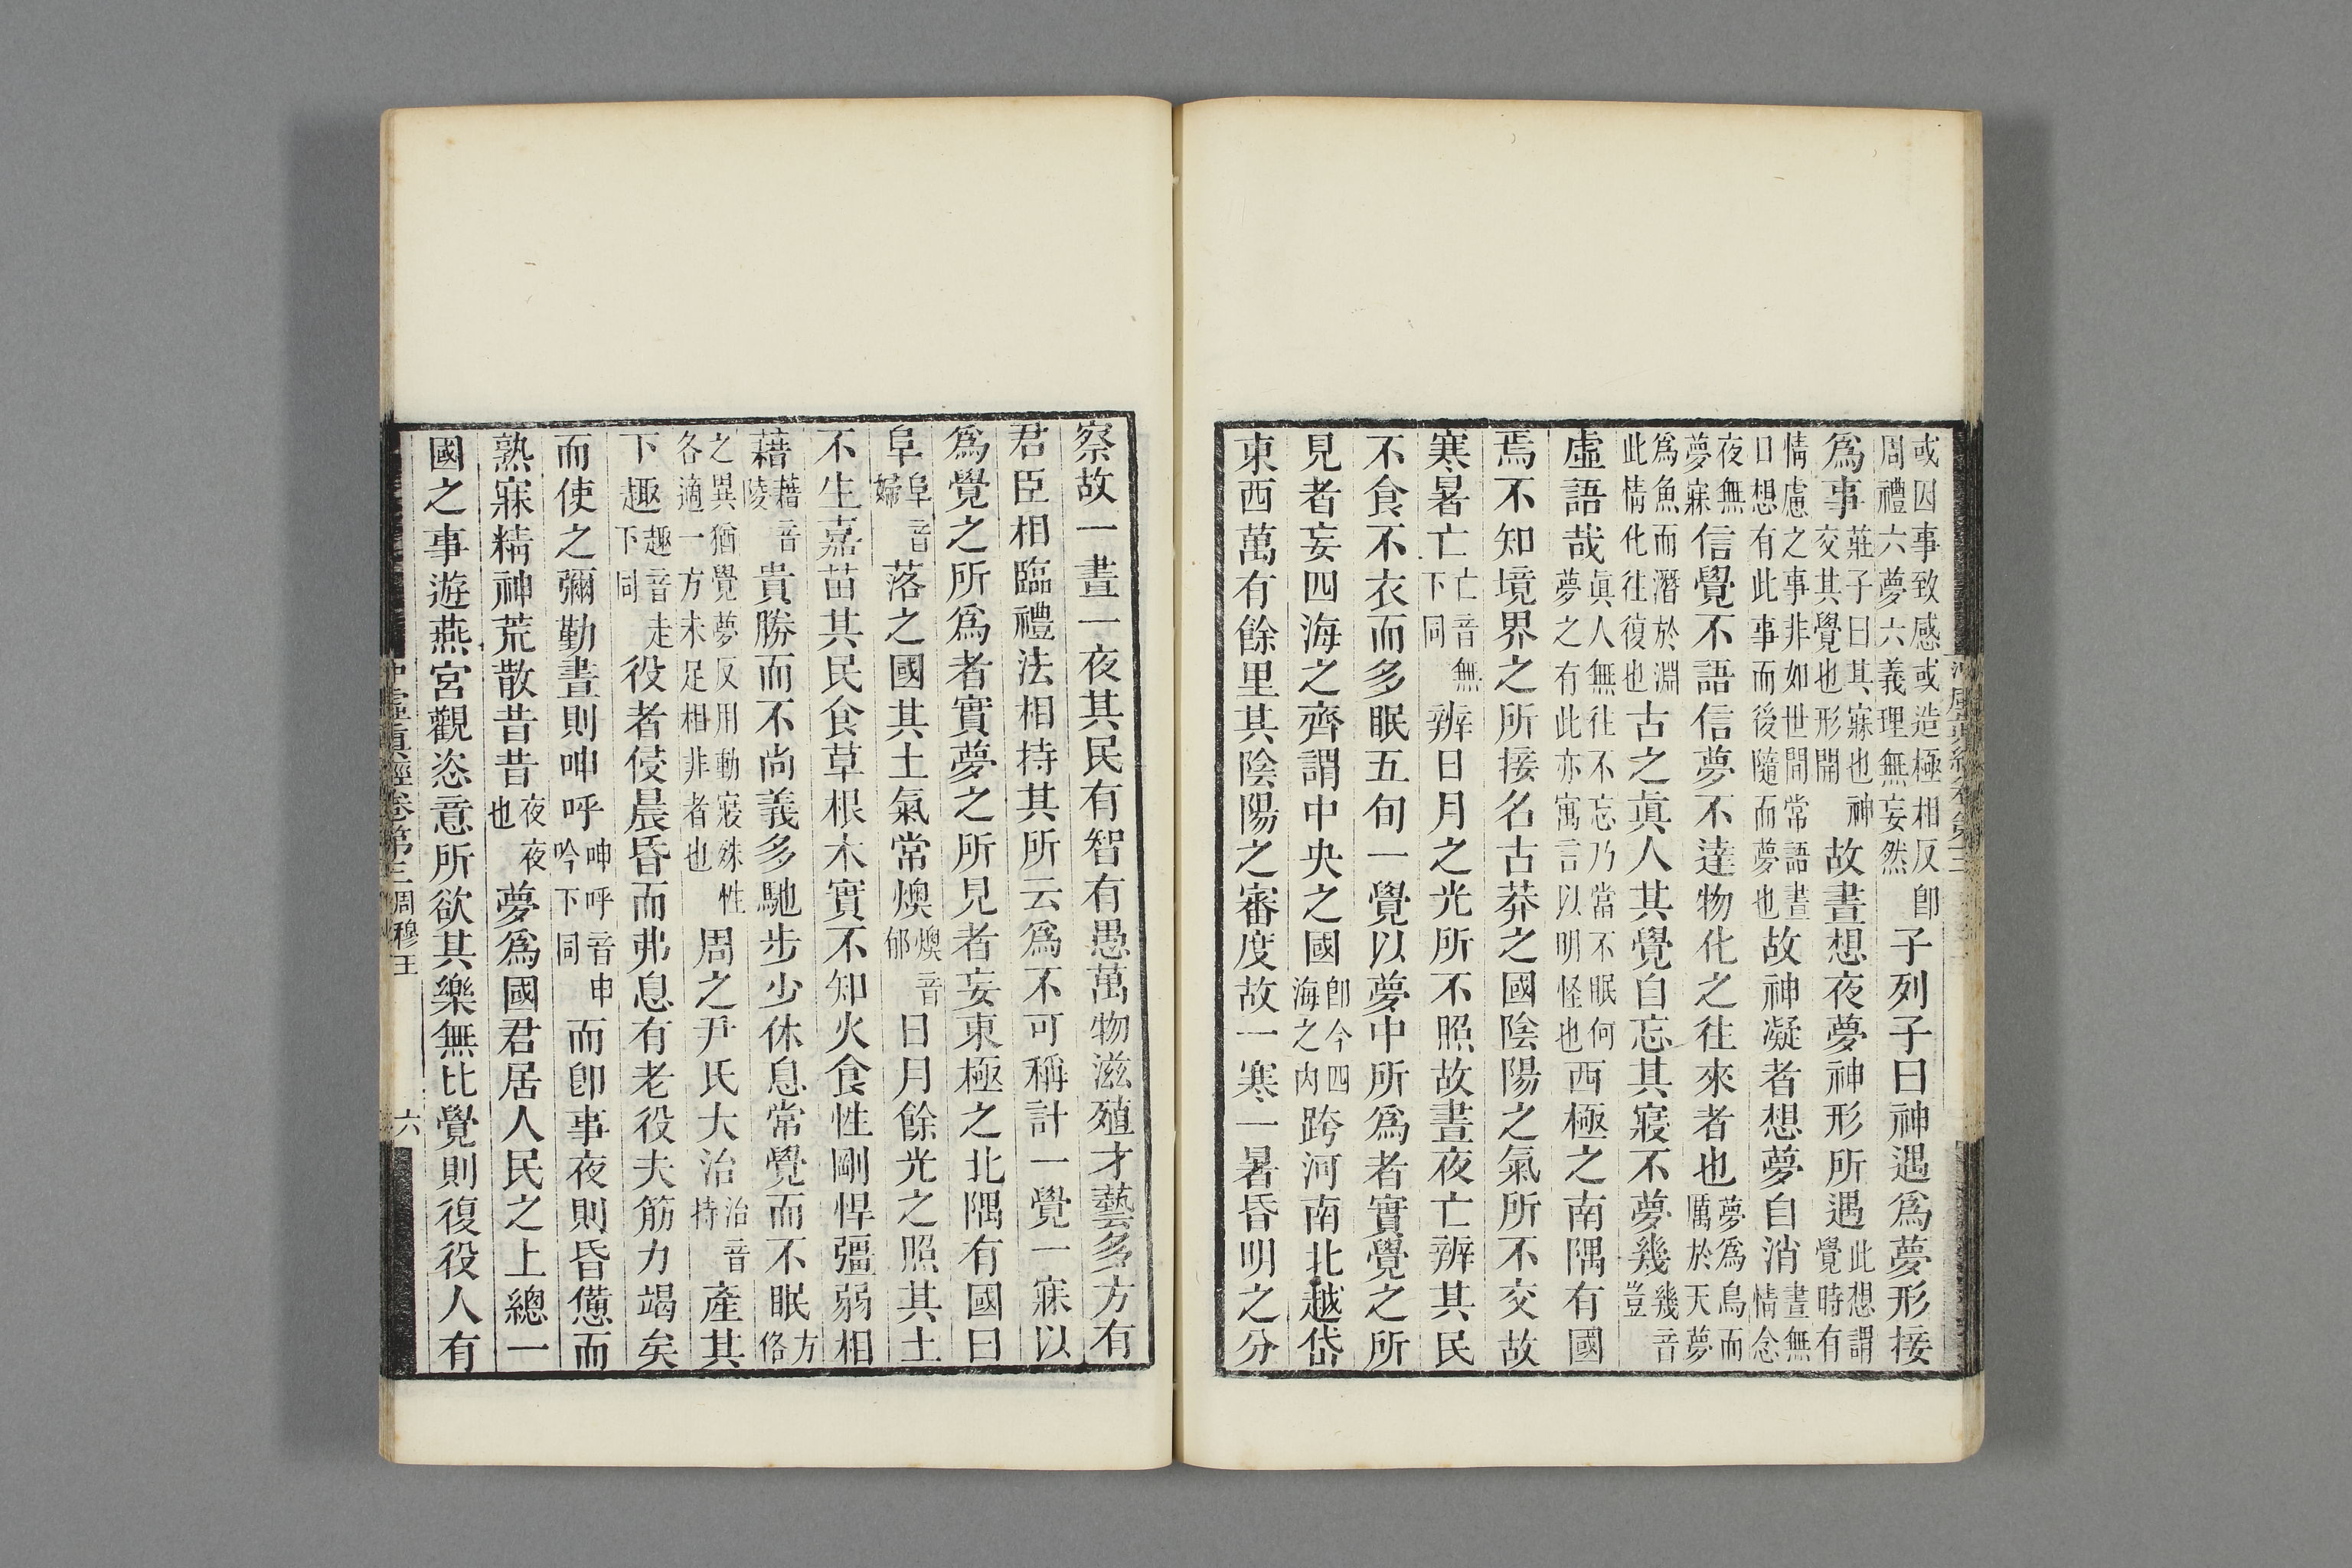 或因事致感或造極相反卽周禮六夢六義理無妄然子列子曰神遇爲夢形接
爲事莊子曰其寐也神交其覺也形開故晝想夜夢神形所遇此想謂覺時有
情慮之事非如世間常語晝日想有此事而後隨而夢也故神凝者想夢自消晝無情念
夜無夢寐信覺不語信夢不達物化之往來者也夢爲鳥而厲於天夢
爲魚而潛於淵此情化往復也古之眞人其覺自忘其寢不夢幾幾音豈
虛語哉眞人無往不忘乃當不眠何夢之有此亦寓言以明怪也西極之南隅有國
焉不知境界之所接名古莽之國陰陽之氣所不交故
寒暑亡亡音無下同辨日月之光所不照故晝夜亡辨其民
不食不衣而多眠五旬一覺以夢中所爲者實覺之所
見者妄四海之齊謂中央之國卽今四海之内跨河南北越岱
東西萬有餘里其陰陽之審度故一寒一暑昏明之分
察故一晝一夜其民有智有愚萬物滋殖才藝多方有
君臣相臨禮法相持其所云爲不可稱計一覺一寐以
爲覺之所爲者實夢之所見者妄東極之北隅有國曰
阜阜音婦落之國其土氣常燠燠音郁日月餘光之照其土
不生嘉苗其民食草根木實不知火食性剛悍彊弱相
藉藉音陵貴勝而不尚義多馳步少休息常覺而不眠方俗
之異猶覺夢反用動寢殊性各適一方未足相非者也周之尹氏大治治音持產其
下趣趣音走下同役者侵晨昏而弗息有老役夫筋力竭矣
而使之彌勤晝則呻呼呻呼音申吟下同而卽事夜則昏憊而
熟寐精神荒散昔昔夜夜也夢爲國君居人民之上總一
國之事遊燕宮觀恣意所欲其樂無比覺則復役人有
沖虛眞經卷第三 周穆王 六